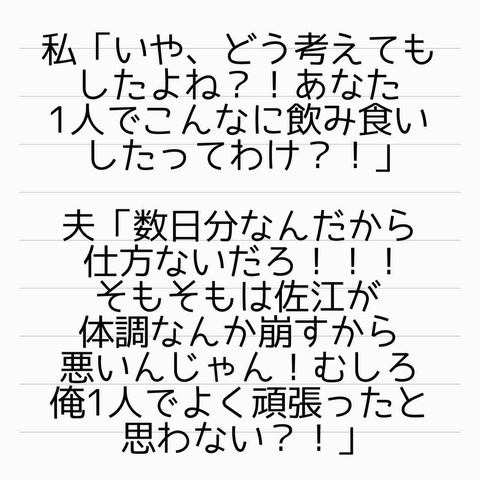 私「いや、どう考えても
したよね？！あなた
1人でこんなに飲み食い
したってわけ？！」
夫「数日分なんだから
仕方ないだろ！！！
そもそもは佐江が
体調なんか崩すから
悪いんじゃん！むしろ
俺1人でよく頑張ったと
思わない？！」